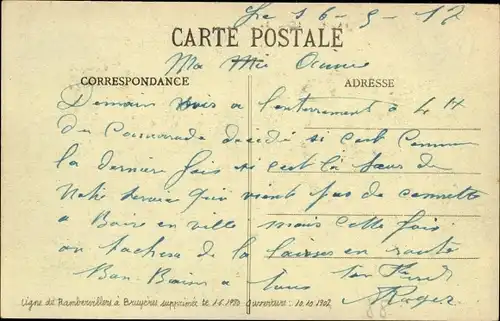 Le 16-9-17
CARTE POSTALE
Ma
CORRESPONDANCE
ADRESSE
Demain a l'enterrement à 4 H
du Camarade décidé si c'est comme
la dernière fois si c'est la sœur de
Notre service qui vient pas de
a Boire en ville mais cette fois
on tachera de la laisser en route
Bon Baiser a tous ton
Roger
Ligne de Rambervillers à Bruyères supprimée le 1.6.1980. Ouverture : 10.10.1907.